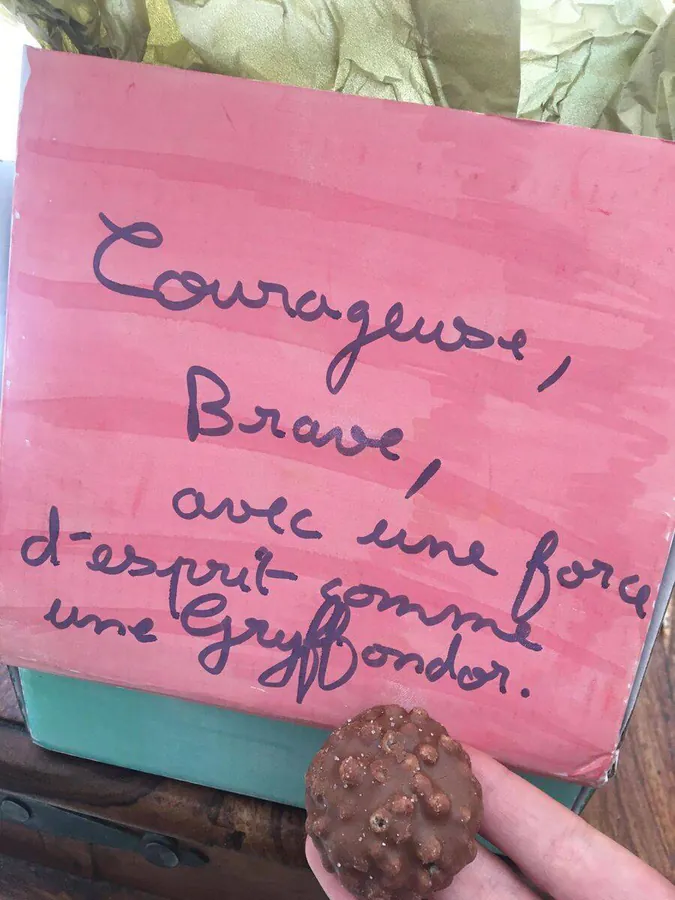 Courageuse,
Brave,
avec une force
d'esprit comme
une Gryffondor.